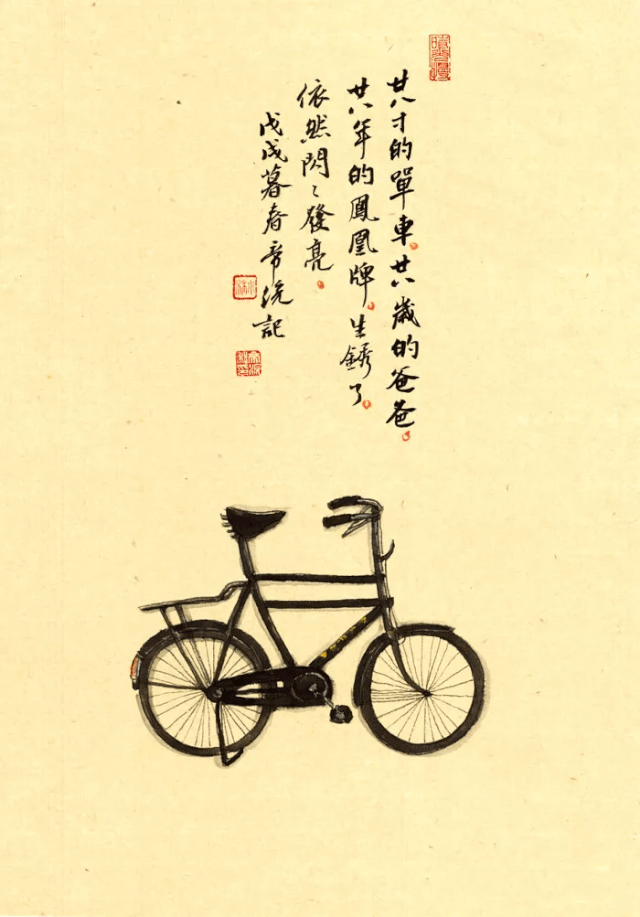 廿八寸的單車。廿八歲的爸爸。
廿八年的鳳凰牌。生銹了。
依然閃〻發亮。
戊戌暮春帝浣記